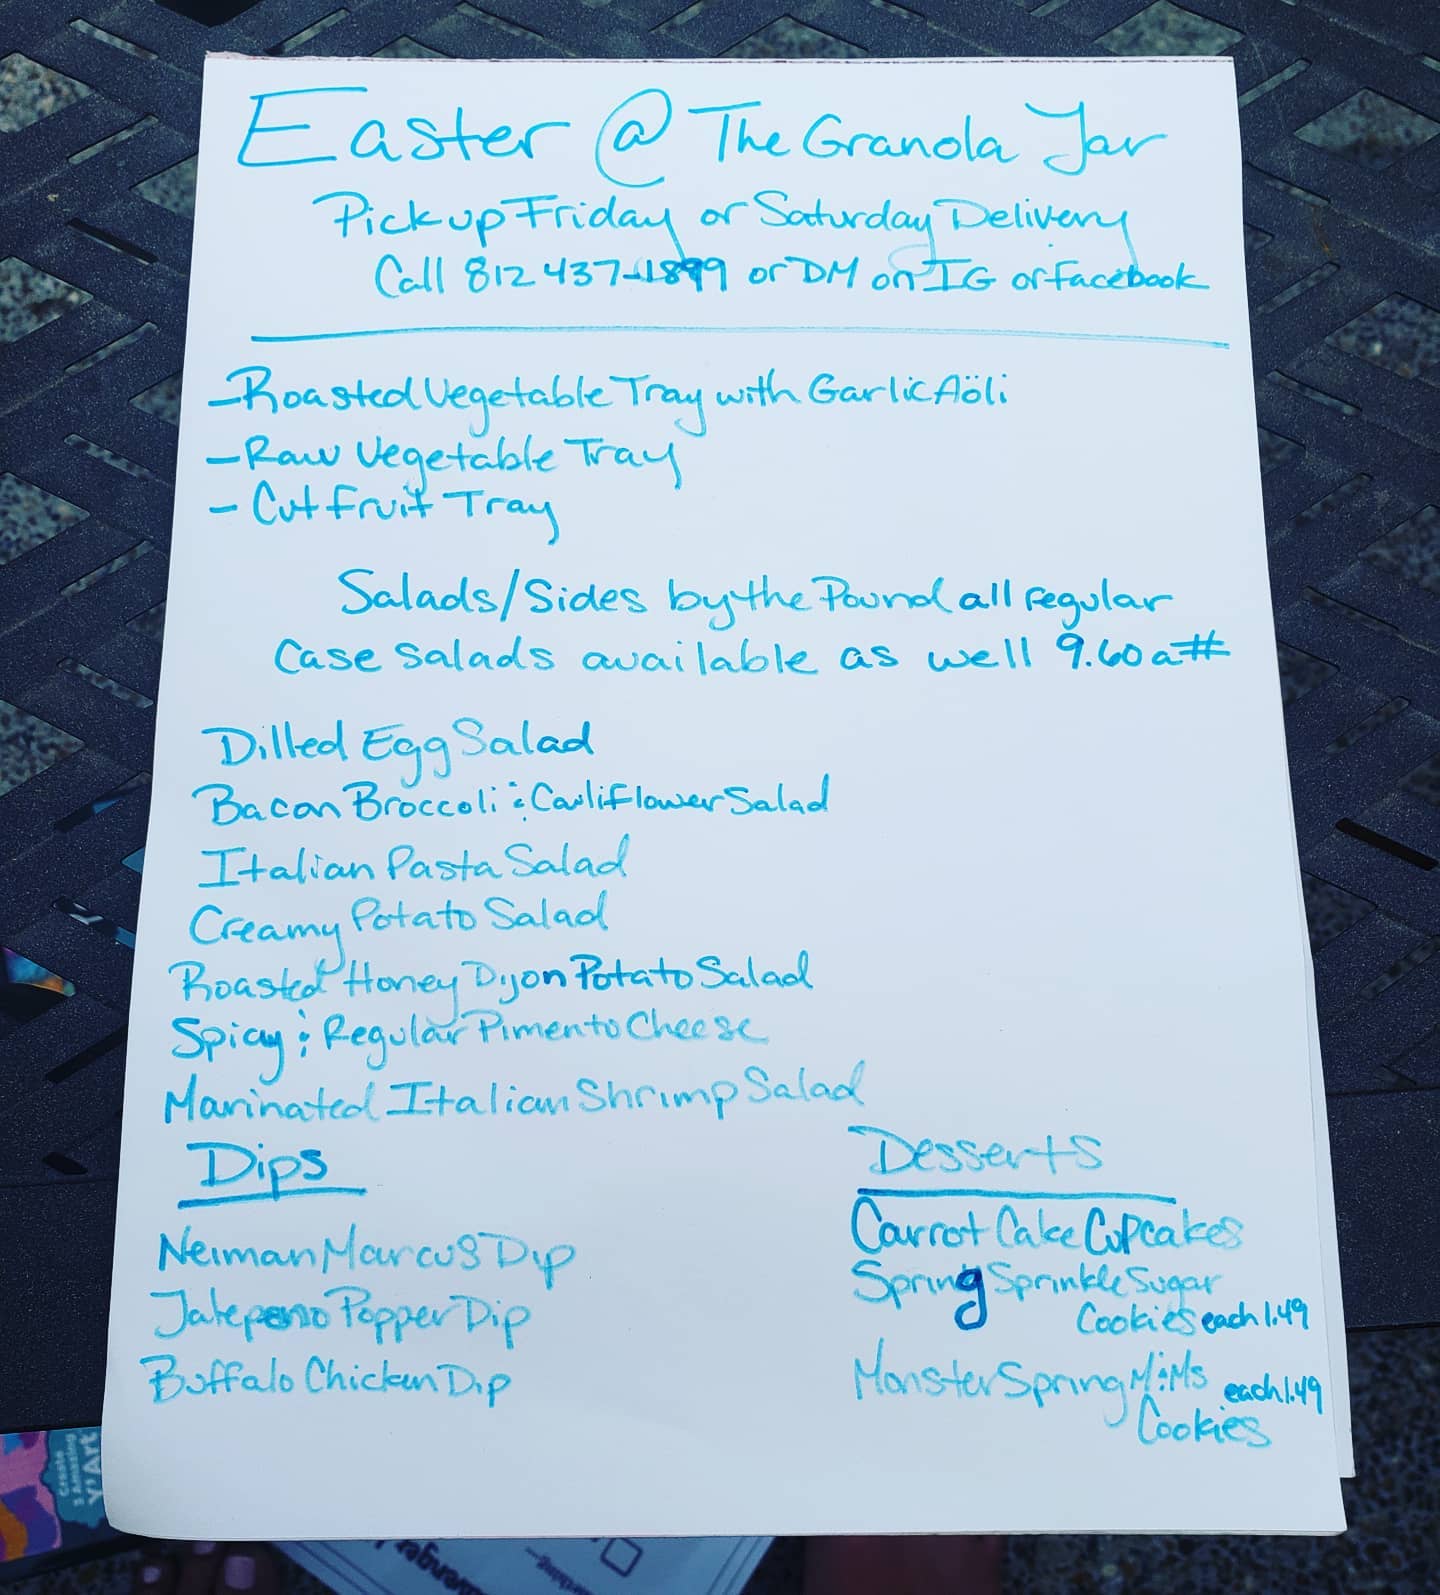 Easter @ The Granola Jar
Pick up Friday or Saturday Delivery
Call 812 437-1899 or DM on IG or Facebook
- Roasted Vegetable Tray with Garlic Aöli
- Raw Vegetable Tray
- Cut Fruit Tray
Salads/Sides by the Pound all regular
Case salads available as well 9.60 a #
Dilled Egg Salad
Bacon Broccoli & Cauliflower Salad
Italian Pasta Salad
Creamy Potato Salad
Roasted Honey Dijon Potato Salad
Spicy & Regular Pimento Cheese
Marinated Italian Shrimp Salad
Dips
Neiman Marcus Dip
Jalepeno Popper Dip
Buffalo Chicken Dip
Desserts
Carrot Cake Cupcakes
Spring Sprinkle Sugar
Cookies each 1.49
Monster Spring M&Ms each 1.49
Cookies
Create
Amazing
Y'Art